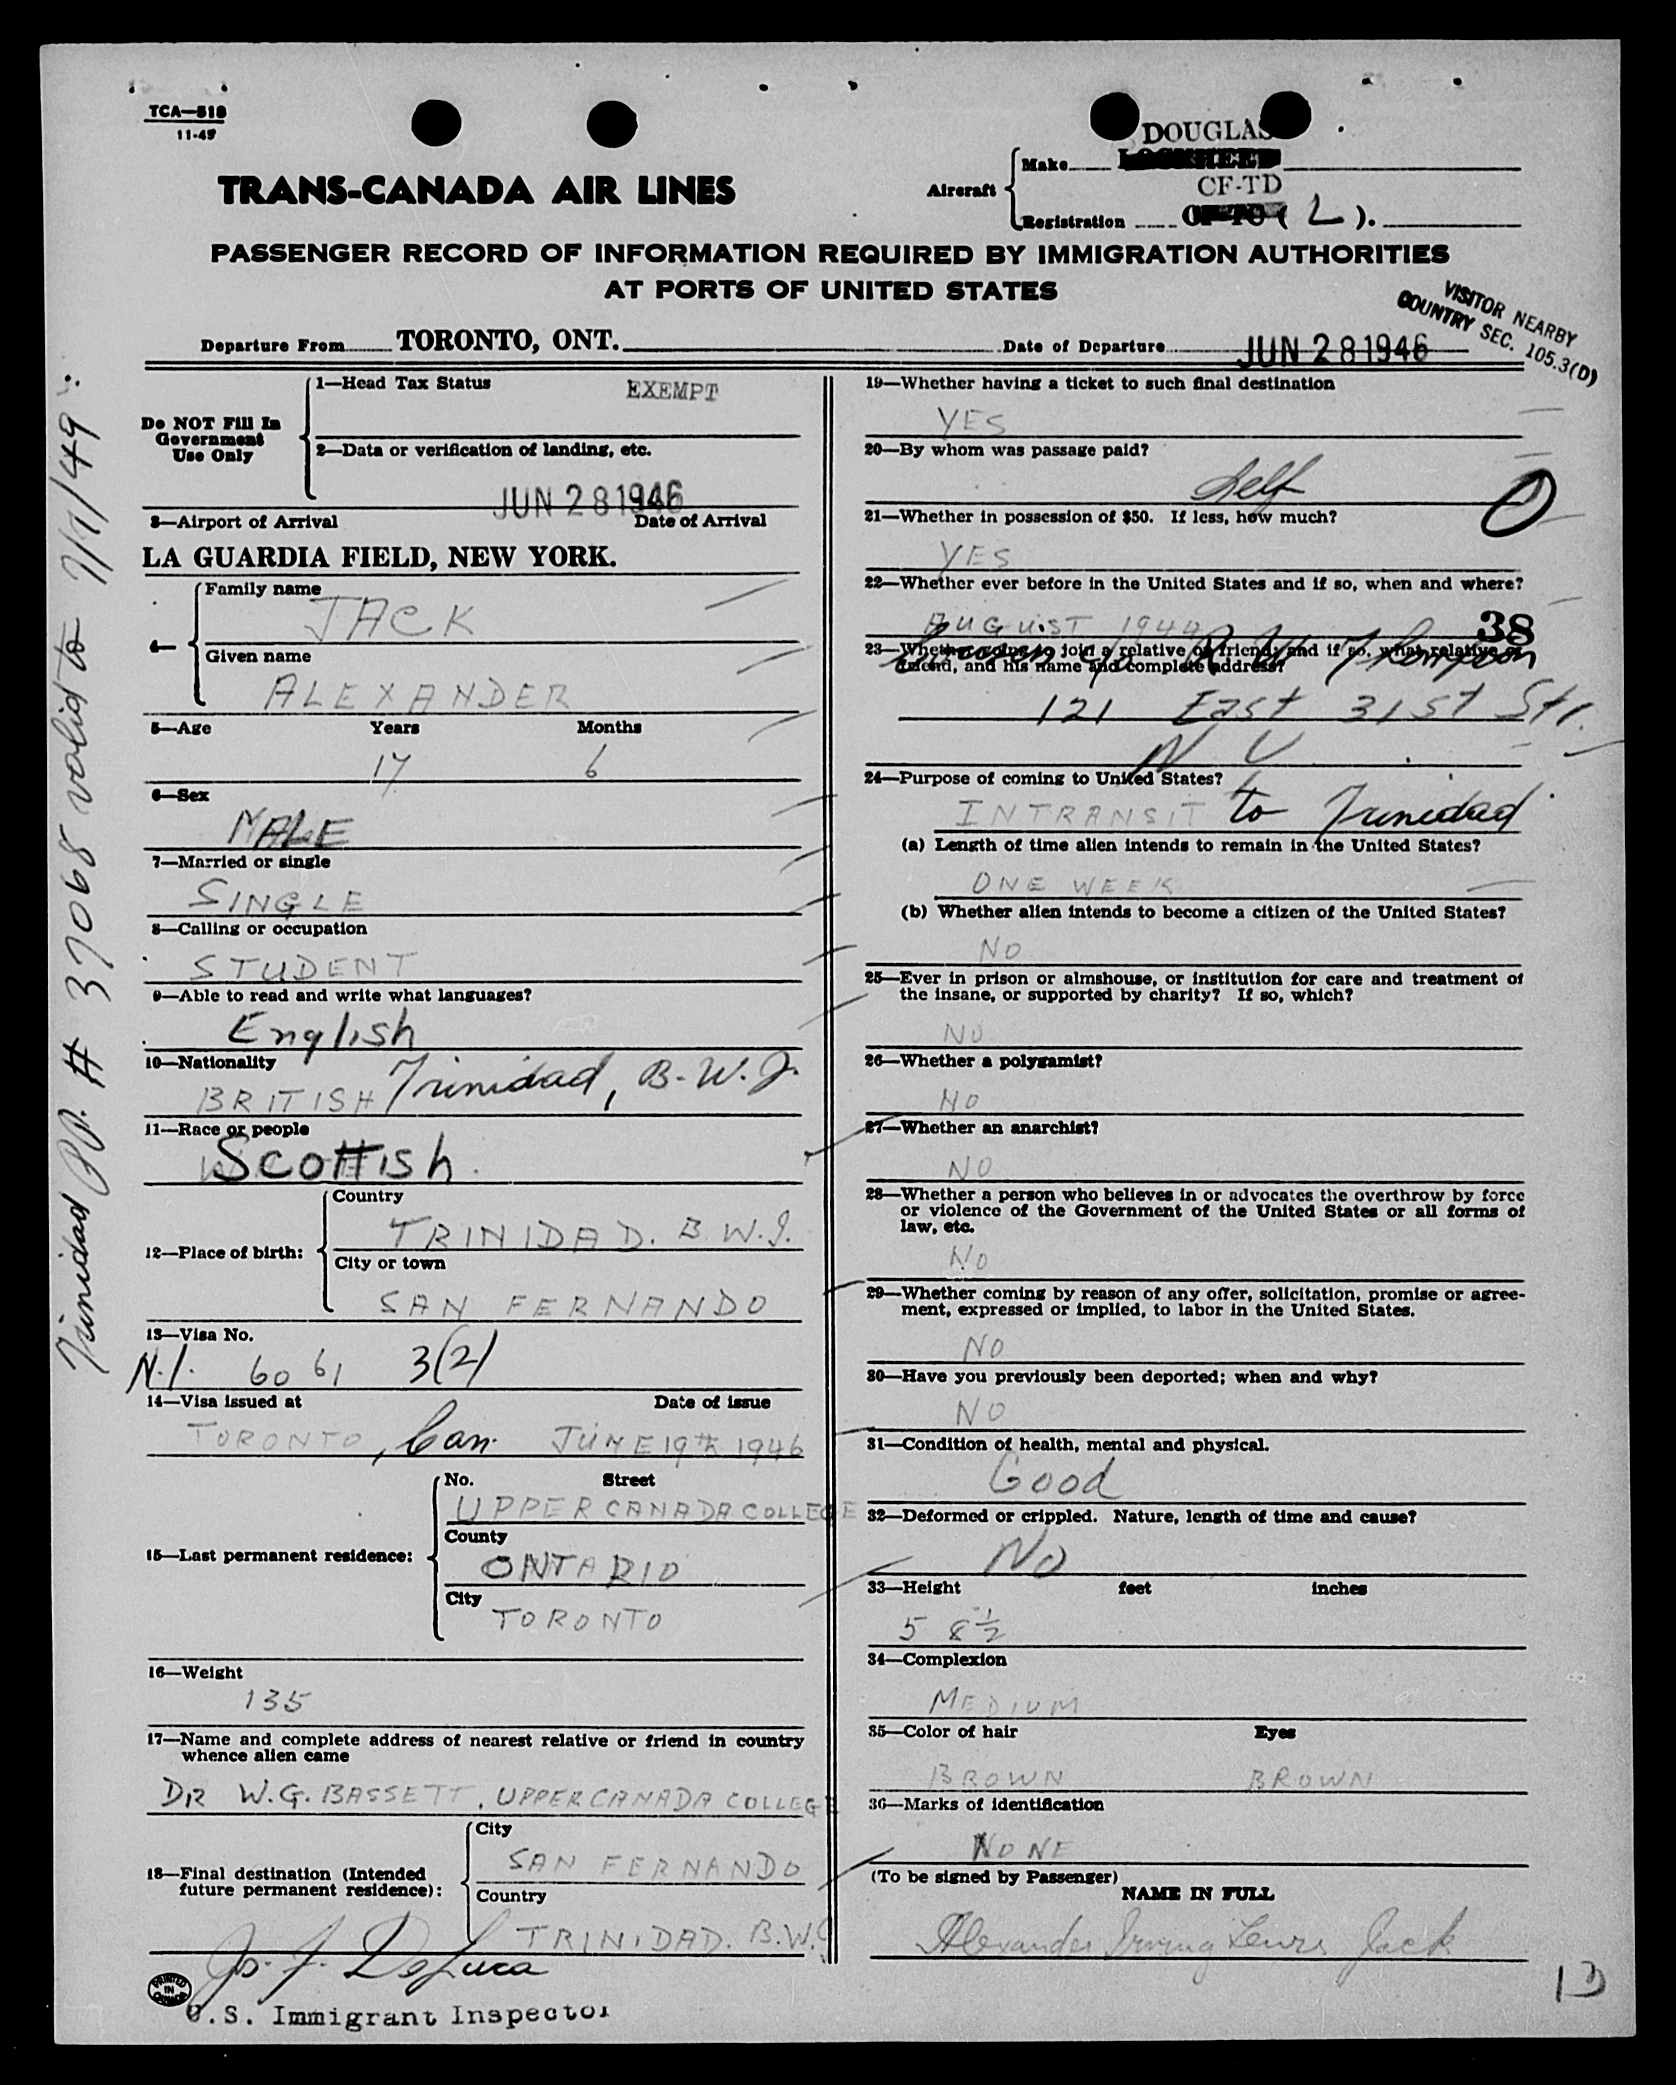 TCA—518
11-45
TRANS-CANADA AIR LINES
Aircraft
Make
DOUGLAS
CF-TD
Registration
( L ).
PASSENGER RECORD OF INFORMATION REQUIRED BY IMMIGRATION AUTHORITIES
AT PORTS OF UNITED STATES
VISITOR NEARBY
COUNTRY SEC. 105.3(D)
Departure From TORONTO, ONT.
Date of Departure JUN 28 1946
Trinidad PP. # 37068 valid to 7/1/49
Do NOT Fill In
Government
Use Only
1—Head Tax Status EXEMPT
2—Data or verification of landing, etc.
JUN 28 1946
3—Airport of Arrival Date of Arrival
LA GUARDIA FIELD, NEW YORK.
4—
Family name
JACK
Given name
ALEXANDER
5—Age Years Months
17 6
6—Sex
MALE
7—Married or single
SINGLE
8—Calling or occupation
STUDENT
9—Able to read and write what languages?
English
10—Nationality
BRITISH Trinidad, B.W.I.
11—Race or people
Scottish.
12—Place of birth:
Country
TRINIDAD. B.W.I.
City or town
SAN FERNANDO
13—Visa No.
N.I. 6061 3(2)
14—Visa issued at Date of issue
TORONTO, Can. JUNE 19th 1946
15—Last permanent residence:
No. Street
UPPER CANADA COLLEGE
County
ONTARIO
City
TORONTO
16—Weight
135
17—Name and complete address of nearest relative or friend in country
whence alien came
DR W.G. BASSETT, UPPER CANADA COLLEGE
18—Final destination (Intended
future permanent residence):
City
SAN FERNANDO
Country
TRINIDAD. B.W.I
DeLuca
U.S. Immigrant Inspector
PRINTED
IN
CANADA
19—Whether having a ticket to such final destination
YES
20—By whom was passage paid?
Self
21—Whether in possession of $50. If less, how much?
YES
22—Whether ever before in the United States and if so, when and where?
AUGUST 1944
38
23—Whether going to join a relative or friend; and if so, what relative or
friend, and his name and complete address?
c/o R. W. Thompson
121 East 31st Str.
N Y
24—Purpose of coming to United States?
INTRANSIT to Trinidad
(a) Length of time alien intends to remain in the United States?
ONE WEEK
(b) Whether alien intends to become a citizen of the United States?
NO
25—Ever in prison or almshouse, or institution for care and treatment of
the insane, or supported by charity? If so, which?
NO
26—Whether a polygamist?
NO
27—Whether an anarchist?
NO
28—Whether a person who believes in or advocates the overthrow by force
or violence of the Government of the United States or all forms of
law, etc.
NO
29—Whether coming by reason of any offer, solicitation, promise or agree-
ment, expressed or implied, to labor in the United States.
NO
30—Have you previously been deported; when and why?
NO
31—Condition of health, mental and physical.
Good
32—Deformed or crippled. Nature, length of time and cause?
No
33—Height feet inches
5 8 1/2
34—Complexion
MEDIUM
35—Color of hair Eyes
BROWN BROWN
36—Marks of identification
NONE
(To be signed by Passenger)
NAME IN FULL
Alexander Irving Lewis Jack
13